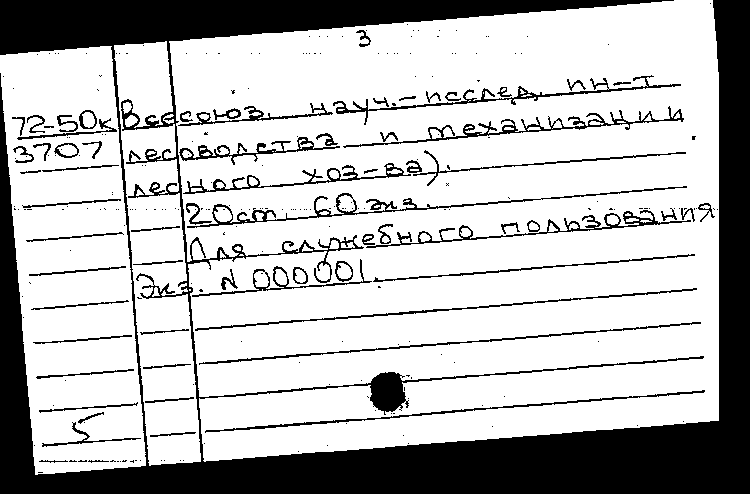 3
72-50к Всесоюз. науч.-исслед. ин-т
3707 лесоводства и механизации
лесного хоз-ва).
20 cm. 60 экз.
Для служебного пользования
Экз. N 000001.
5